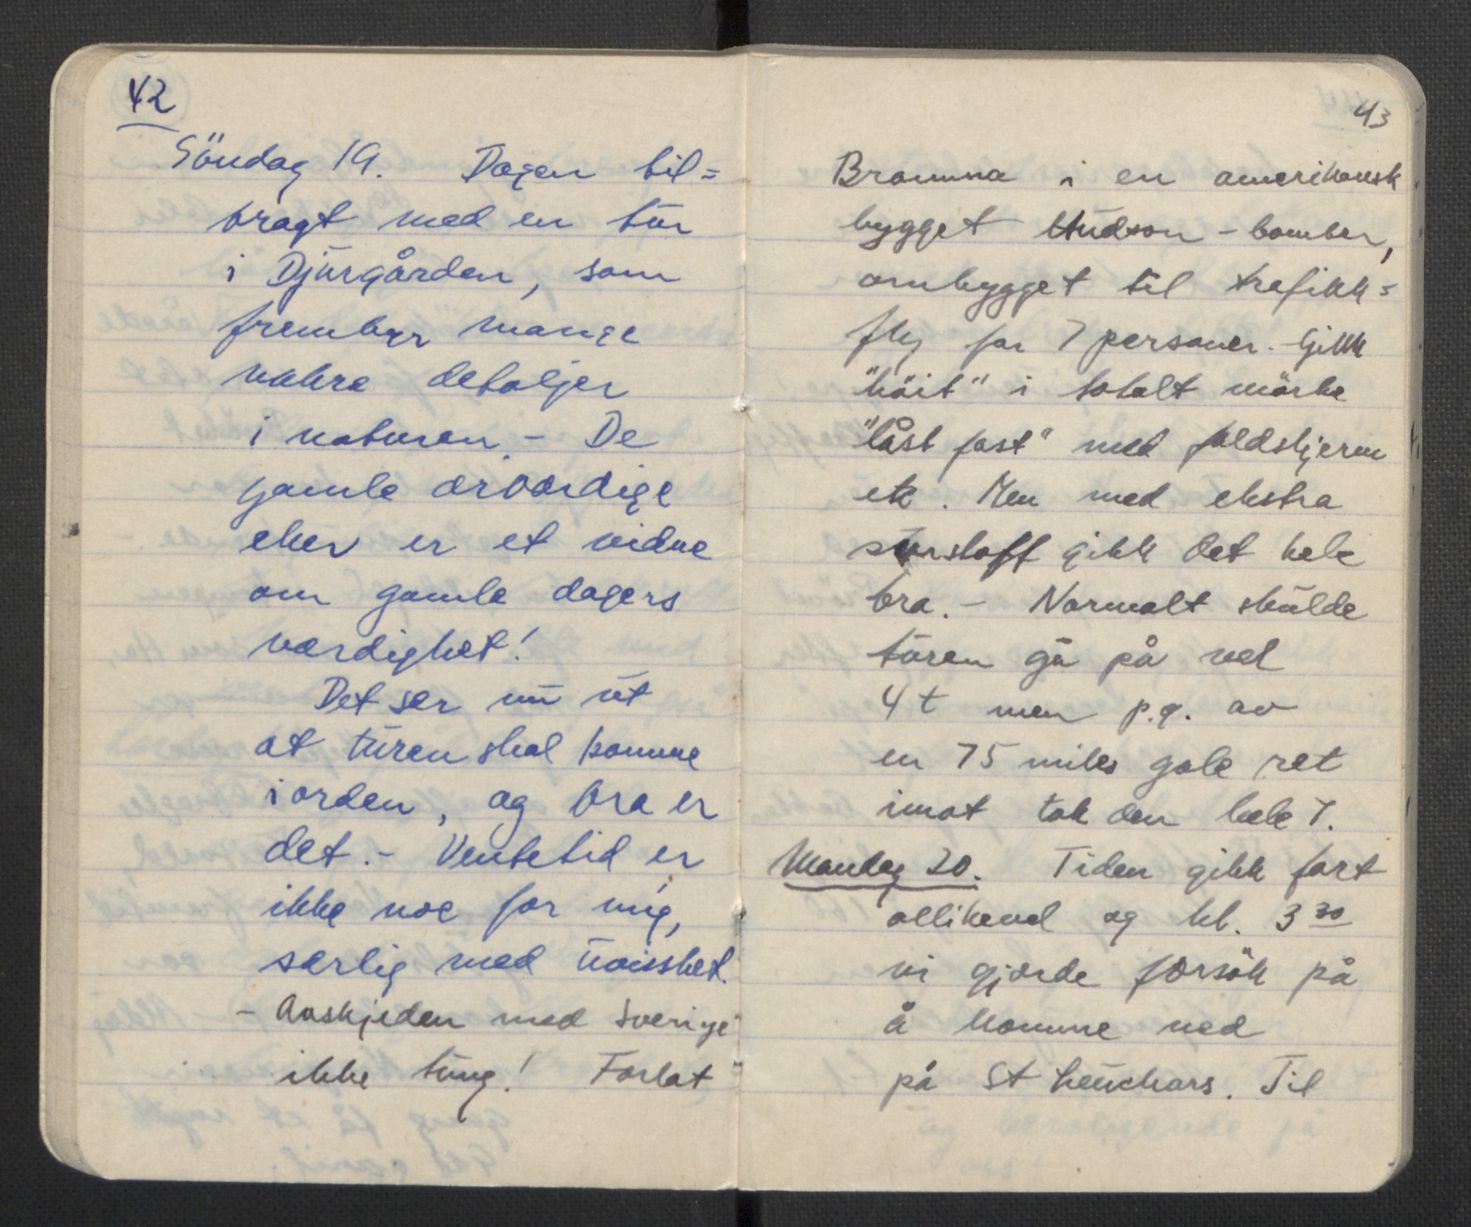 42
Söndag 19. Dagen til=
bragt med en tur
i Djurgården, som
frembyr mange
vakre detaljer
i naturen. - De
gamle ærværdige
eker er et vidne
om gamle dagers
værdighet!
Det ser nu ut
at turen skal komme
i orden, og bra er
det. - Ventetid er
ikke noe for mig,
særlig med uvisshet.
- Avskjeden med Sverige
ikke tung! Forlot
43
Bromma i en amerikansk
bygget Hudson - bomber,
ombygget til trafikk=
fly for 7 personer. - Gikk
"höit" i totalt mörke
"låst fast" med faldskjerm
etc. Men med ekstra
surstoff gikk det hele
bra. - Normalt skulde
turen gå på vel
4 t men p.g. av
en 75 miles gale ret
imot tok den hele 7.
Mandag 20. Tiden gikk fort
allikevel og kl. 3 30
vi gjorde forsök på
å komme ned
på St Leuchars. Til